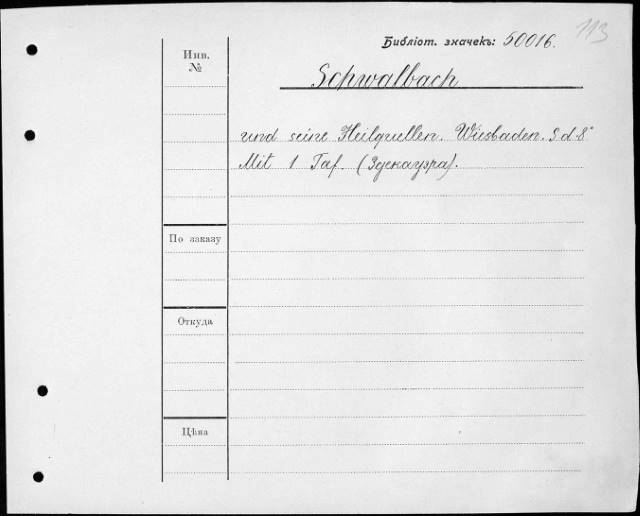 113
Библіот. значекъ: 50016.
Инв.
№
Schwalbach
und seine Heilquellen. Wiesbaden. S d. 8°
Mit 1 Taf. (Здекауэра).
По заказу
Откуда
Цѣна